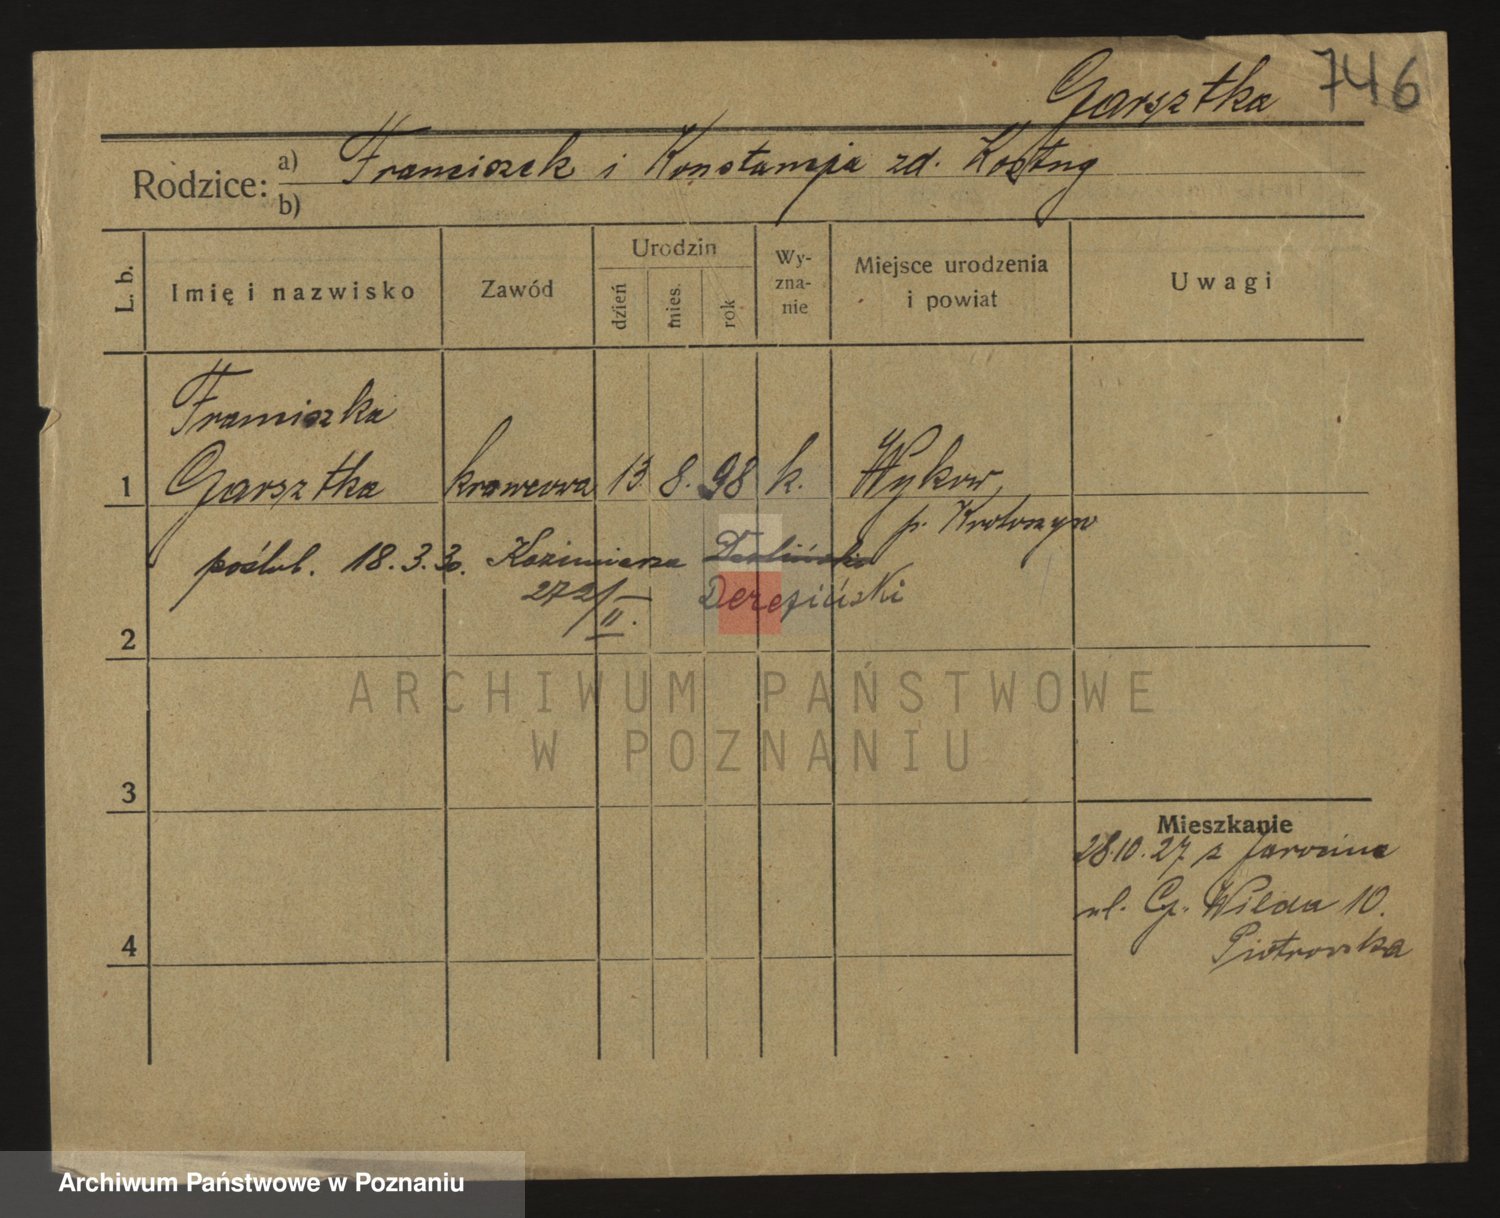 Garsztka 746
Rodzice: a) Franciszek i Konstancja zd. Kostug
b)
L. b. Imię i nazwisko Zawód Urodzin dzień mies. rok Wyznanie Miejsce urodzenia i powiat Uwagi
Franciszka
1 Garsztka krawcowa 13. 8. 98 k. Wyków,
p. Krotoszyn
poślub. 18.3.30. Kazimierza
272/II. Dereziński
2
3
Mieszkanie
28.10.27 z Jarocina
ul. G. Wilda 10.
4 Piotrowska
ARCHIWUM PAŃSTWOWE
W POZNANIU
Archiwum Państwowe w Poznaniu